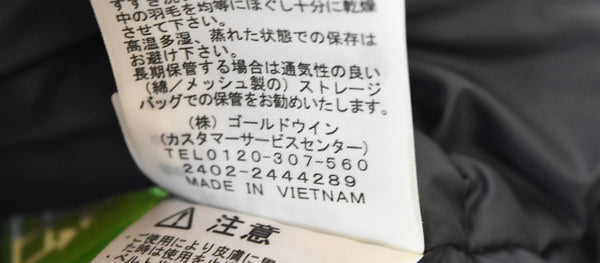 中の羽毛を均等にほぐし十分に乾燥
させて下さい。
高温多湿、蒸れた状態での保存は
お避け下さい。
長期保管する場合は通気性の良い
(綿/メッシュ製の)ストレージ
バッグでの保管をお勧めいたします。
(株)ゴールドウイン
(カスタマーサービスセンター)
TEL0120-307-560
2402-2444289
MADE IN VIETNAM
注意
・ご使用により皮膚に異
た時は使用を
・ベルト